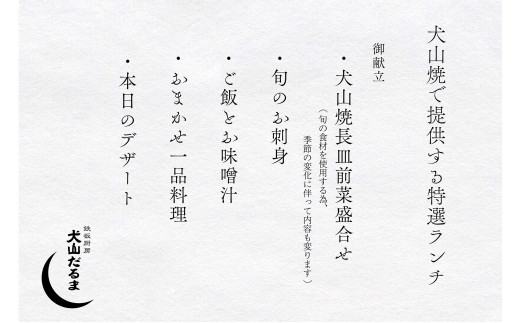 犬山焼で提供する特選ランチ
御献立
・犬山焼長皿前菜盛合せ
（旬の食材を使用する為、
季節の変化に伴って内容も変ります）
・旬のお刺身
・ご飯とお味噌汁
・おまかせ一品料理
・本日のデザート
鉄板厨房
犬山だるま